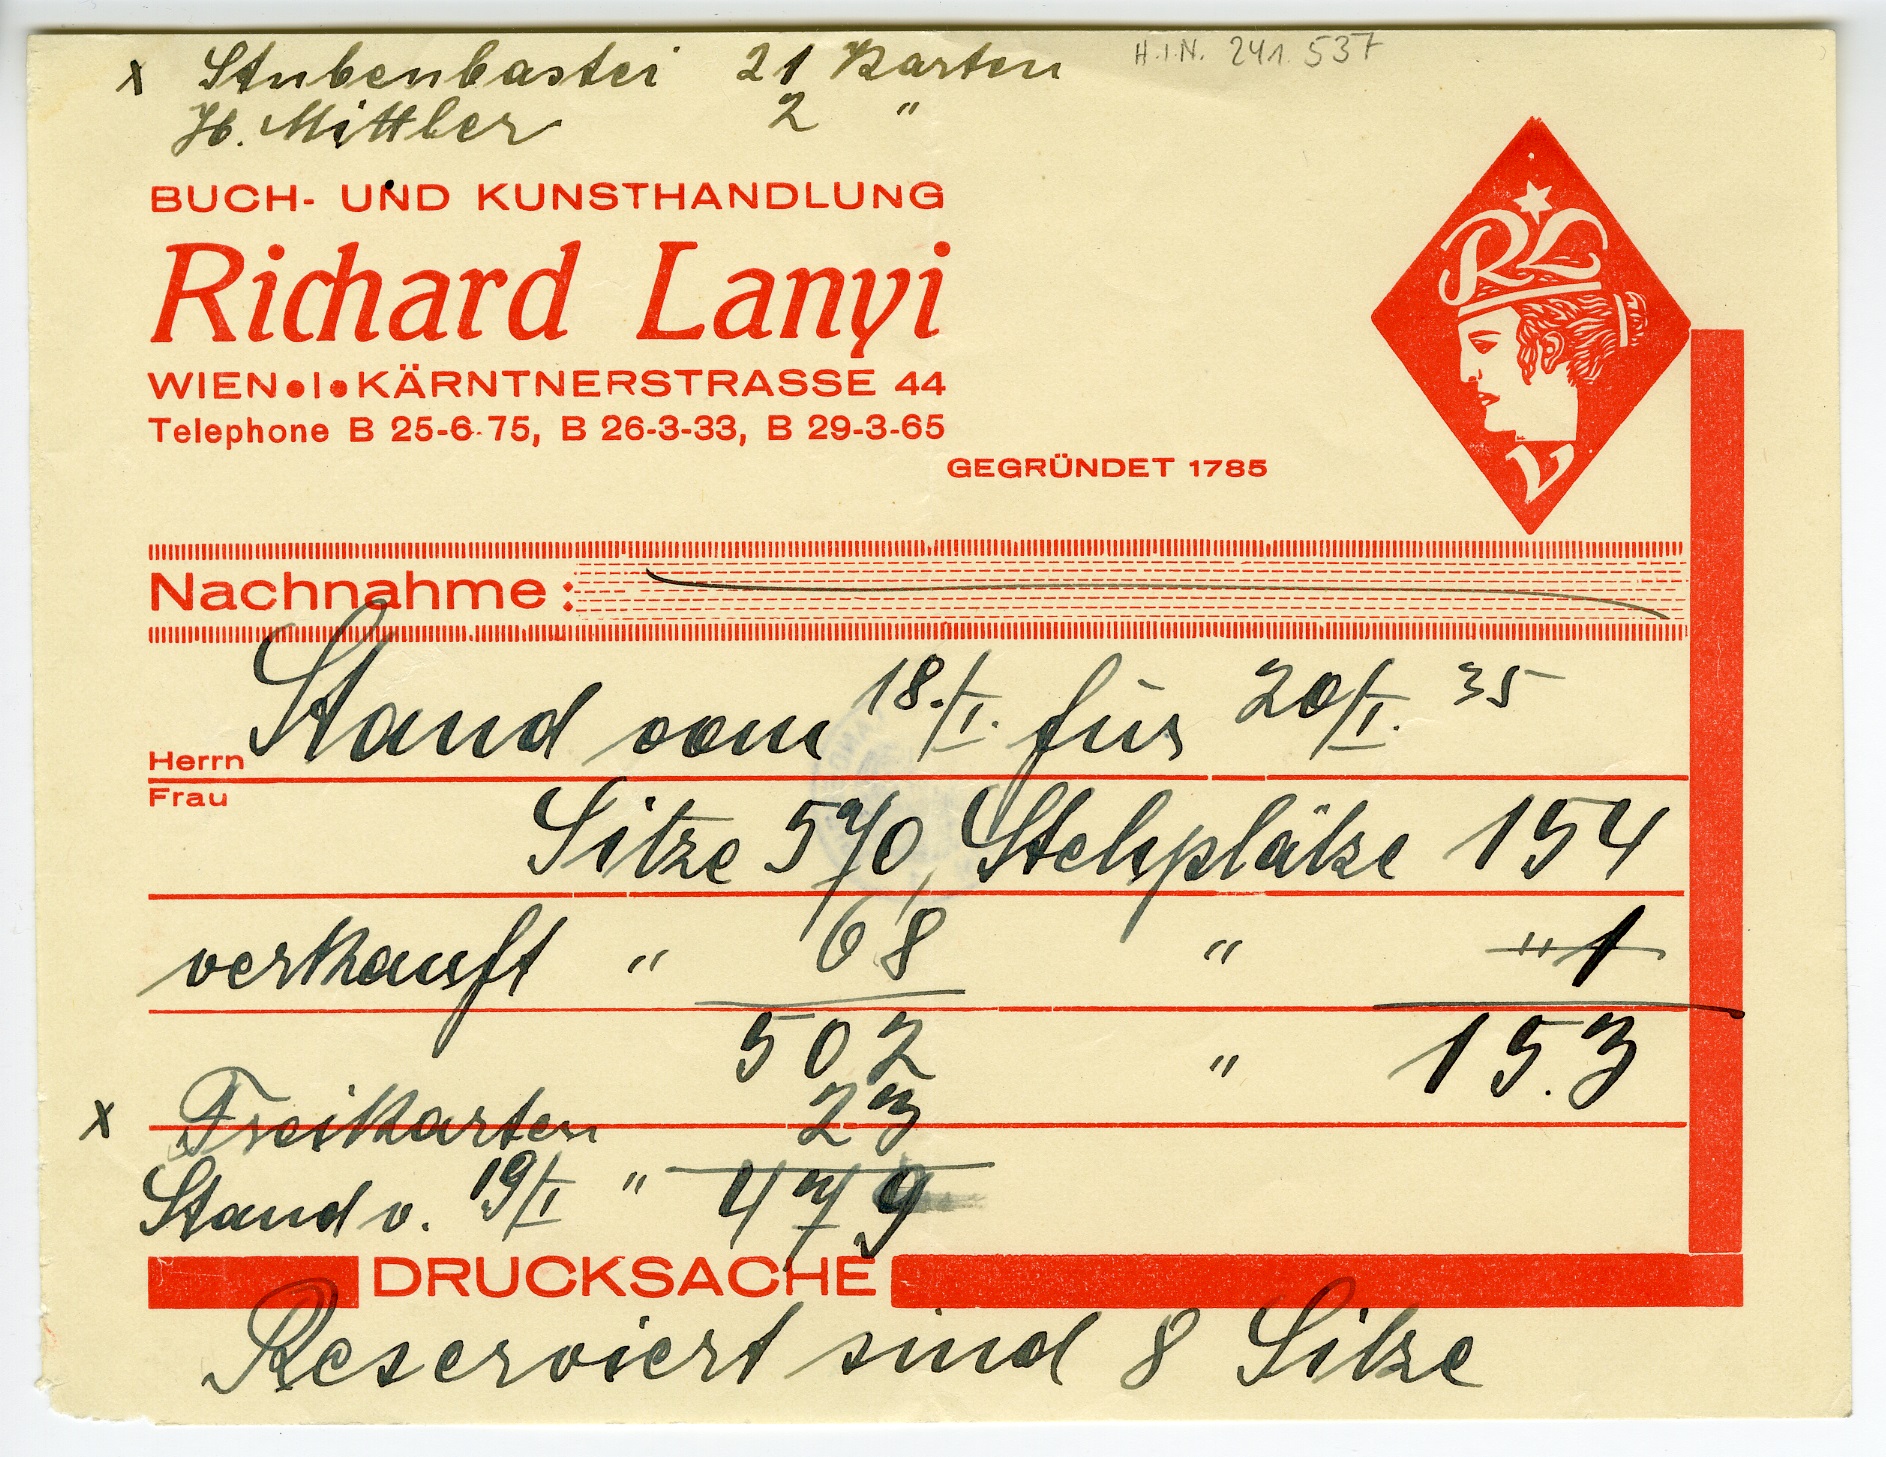 x Stubenbastei 21 Karten
H.I.N. 241.537
H. Mittler 2 "
BUCH- UND KUNSTHANDLUNG
Richard Lanyi
WIEN•I•KÄRNTNERSTRASSE 44
Telephone B 25-6-75, B 26-3-33, B 29-3-65
GEGRÜNDET 1785
RL
V
Nachnahme:
Stand vom 18./I. für 20/I. 35
Herrn
Frau
Sitze 570, Stehplätze 154
verkauft " 68 " " 1
502 " 153
x Freikarten 23
Stand v. 19/I " 479
DRUCKSACHE
Reserviert sind 8 Sitze